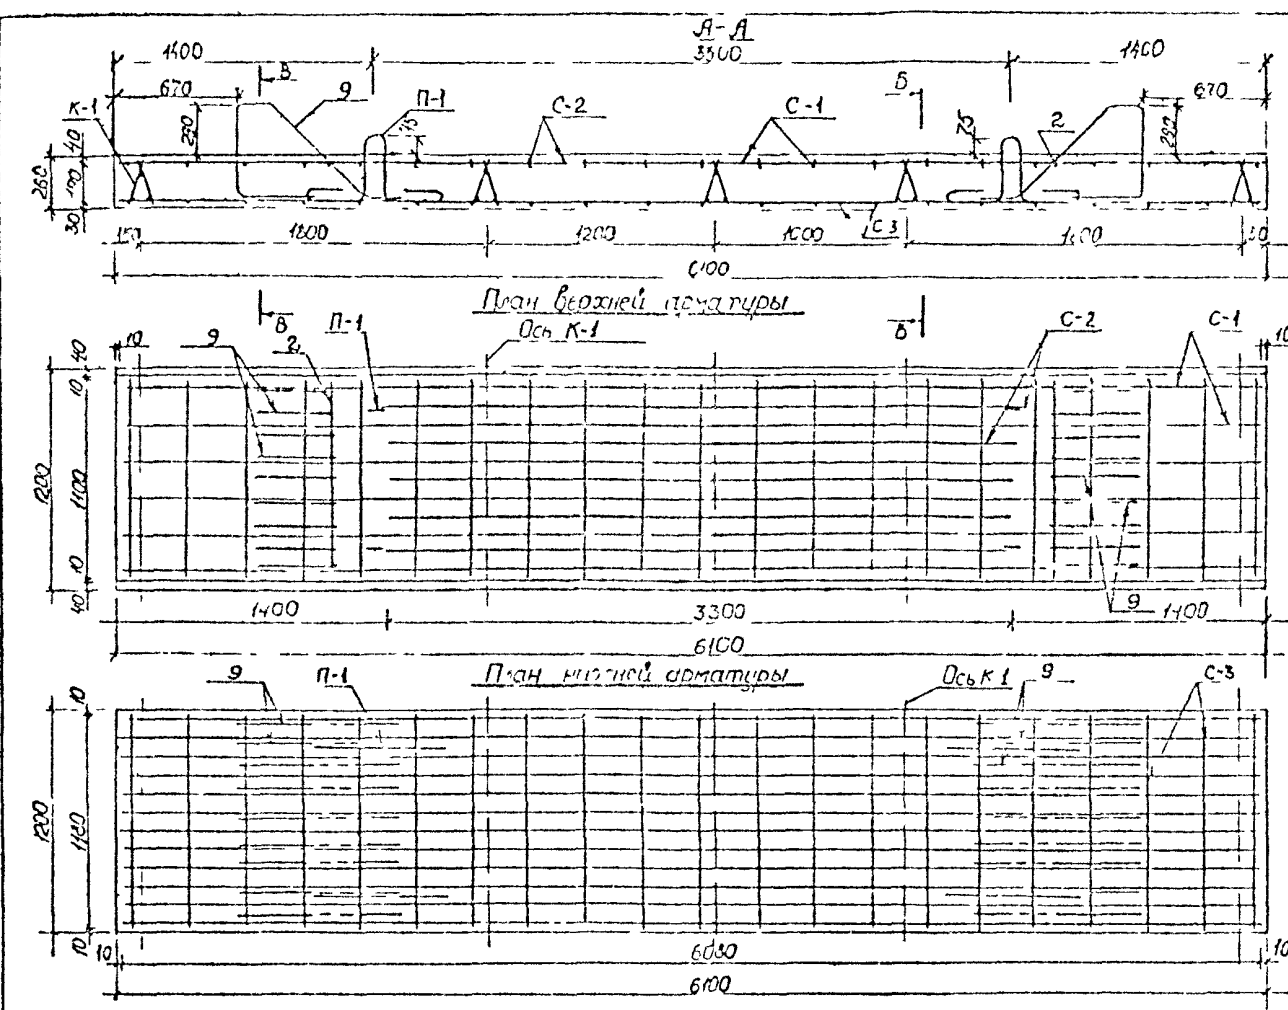 А-А
1400
3300
1400
670
В
9
П-1
С-2
С-1
Б
670
К-1
290
75
75
2
290
40
260
170
30
150
1800
1200
1000
С-3
6100
План верхней арматуры
В
П-1
Ось К-1
Б
С-2
С-1
10
9
2
10
40
10
1200
1100
10
40
1400
3300
9
1400
6100
План нижней арматуры
9
П-1
Ось К-1
9
С-3
10
1200
1180
10
10
6080
10
6100